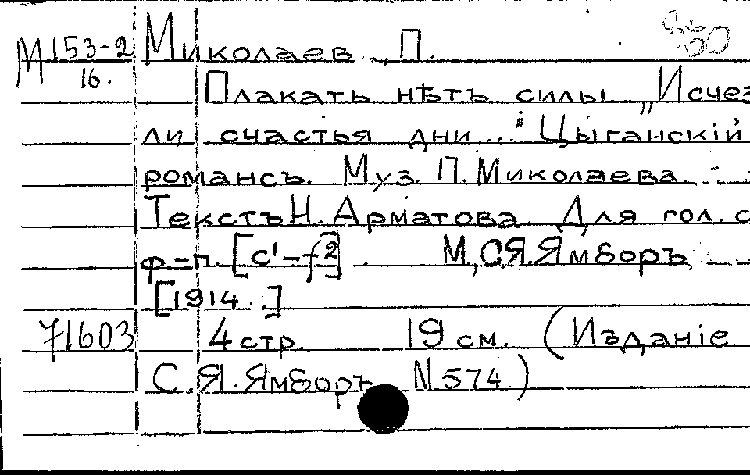 М153-2 Миколаев, П.
16.
Плакать нѣтъ силы „Исчез
ли счастья дни..." Цыганскій
романсъ. Муз. П. Миколаева.
Текстъ Н. Арматова. Для гол. с
ф-п. [c¹-f²]. М, С.Я.Ямборъ
[1914.]
71603 4 стр. 19 см. (Изданіе
С.Я.Ямборъ N 574)